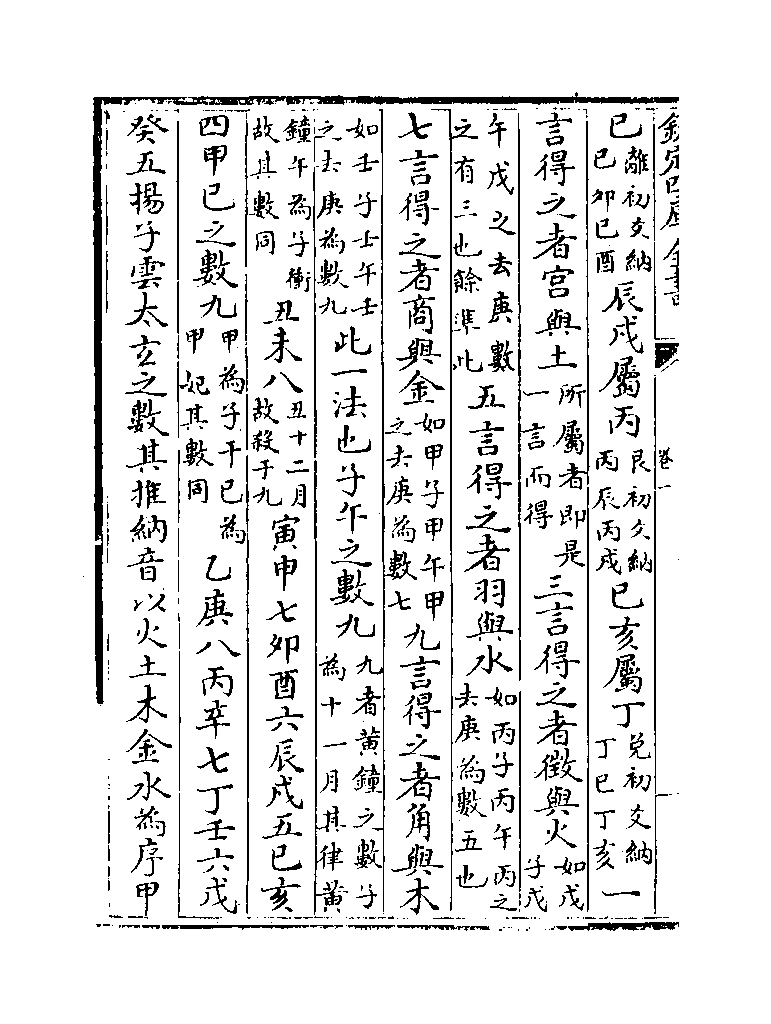 欽定四庫全書
卷一
已離初爻納己卯已酉辰戌屬丙艮初爻納丙辰丙戌已亥屬丁兌初爻納丁巳丁亥一
言得之者宫與土所屬者即是一言而得三言得之者徵與火如戊子戊
午戊之去庚數之有三也餘準此五言得之者羽與水如丙子丙午丙之去庚為數五也
七言得之者商與金如甲子甲午甲之去庚為數七九言得之者角與木
如壬子壬午壬之去庚為數九此一法也子午之數九九者黄鐘之數子為十一月其律黄
鐘午為子衝故其數同丑未八丑十二月故殺于九寅申七卯酉六辰戌五已亥
四甲已之數九甲為子干已為甲妃其數同乙庚八丙辛七丁壬六戊
癸五揚子雲太玄之數其推納音以火土木金水為序甲